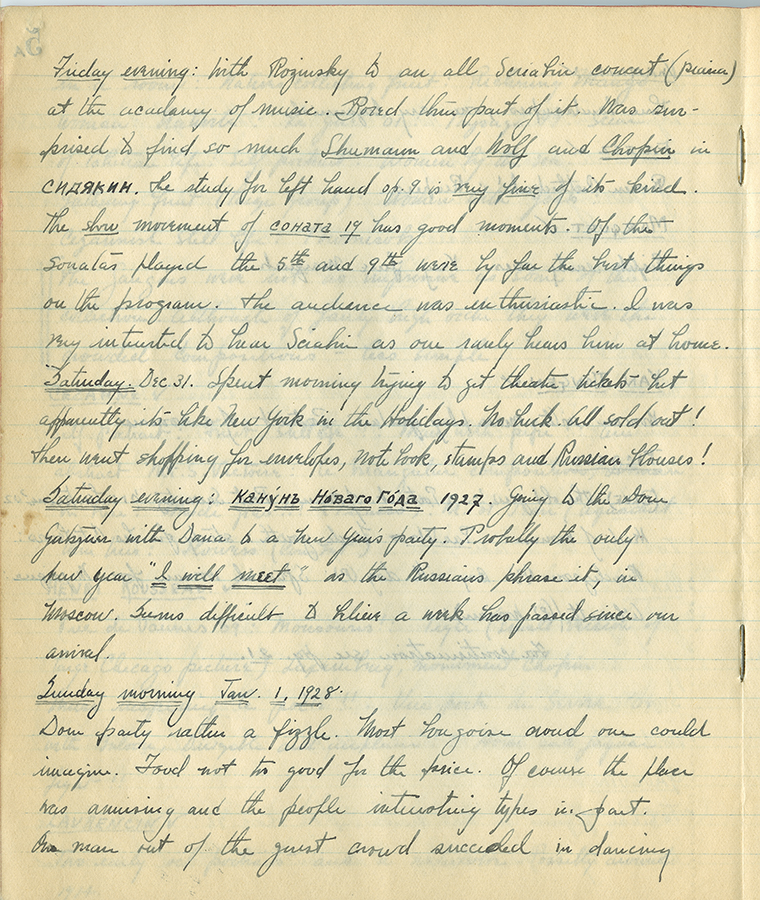 Friday evening: With Rozinsky to an all Scriabin concert (piano)
at the academy of music. Bored thru part of it. Was sur-
prised to find so much Shumann and Wolf and Chopin in
СИДЯКИН. The study for left hand op. 9 is very fine of its kind.
The slow movement of соната 19 has good moments. Of the
Sonatas played the 5th and 9th were by far the best things
on the program. The audience was enthusiastic. I was
very interested to hear Sciabin as one rarely hears him at home.
Saturday. Dec 31. Spent morning trying to get theatre tickets but
apparently it's like New York in the Holidays. No luck. All sold out!
Then went shopping for envelopes, note book, stamps and Russian blouses!
Saturday evening: Кану́нъ Но́ваго Го́да 1927. Going to the Dom
with Dana to a new year's party. Probably the only
new year "I will meet" as the Russians phrase it, in
Moscow. Seems difficult to believe a week has passed since our
arrival.
Sunday morning Jan. 1, 1928.
Dom party rather a fizzle. Most bourgoise crowd one could
imagine. Food not too good for the price. Of course the place
was amusing and the people interesting types in part.
One man out of the guest crowd succeeded in dancing